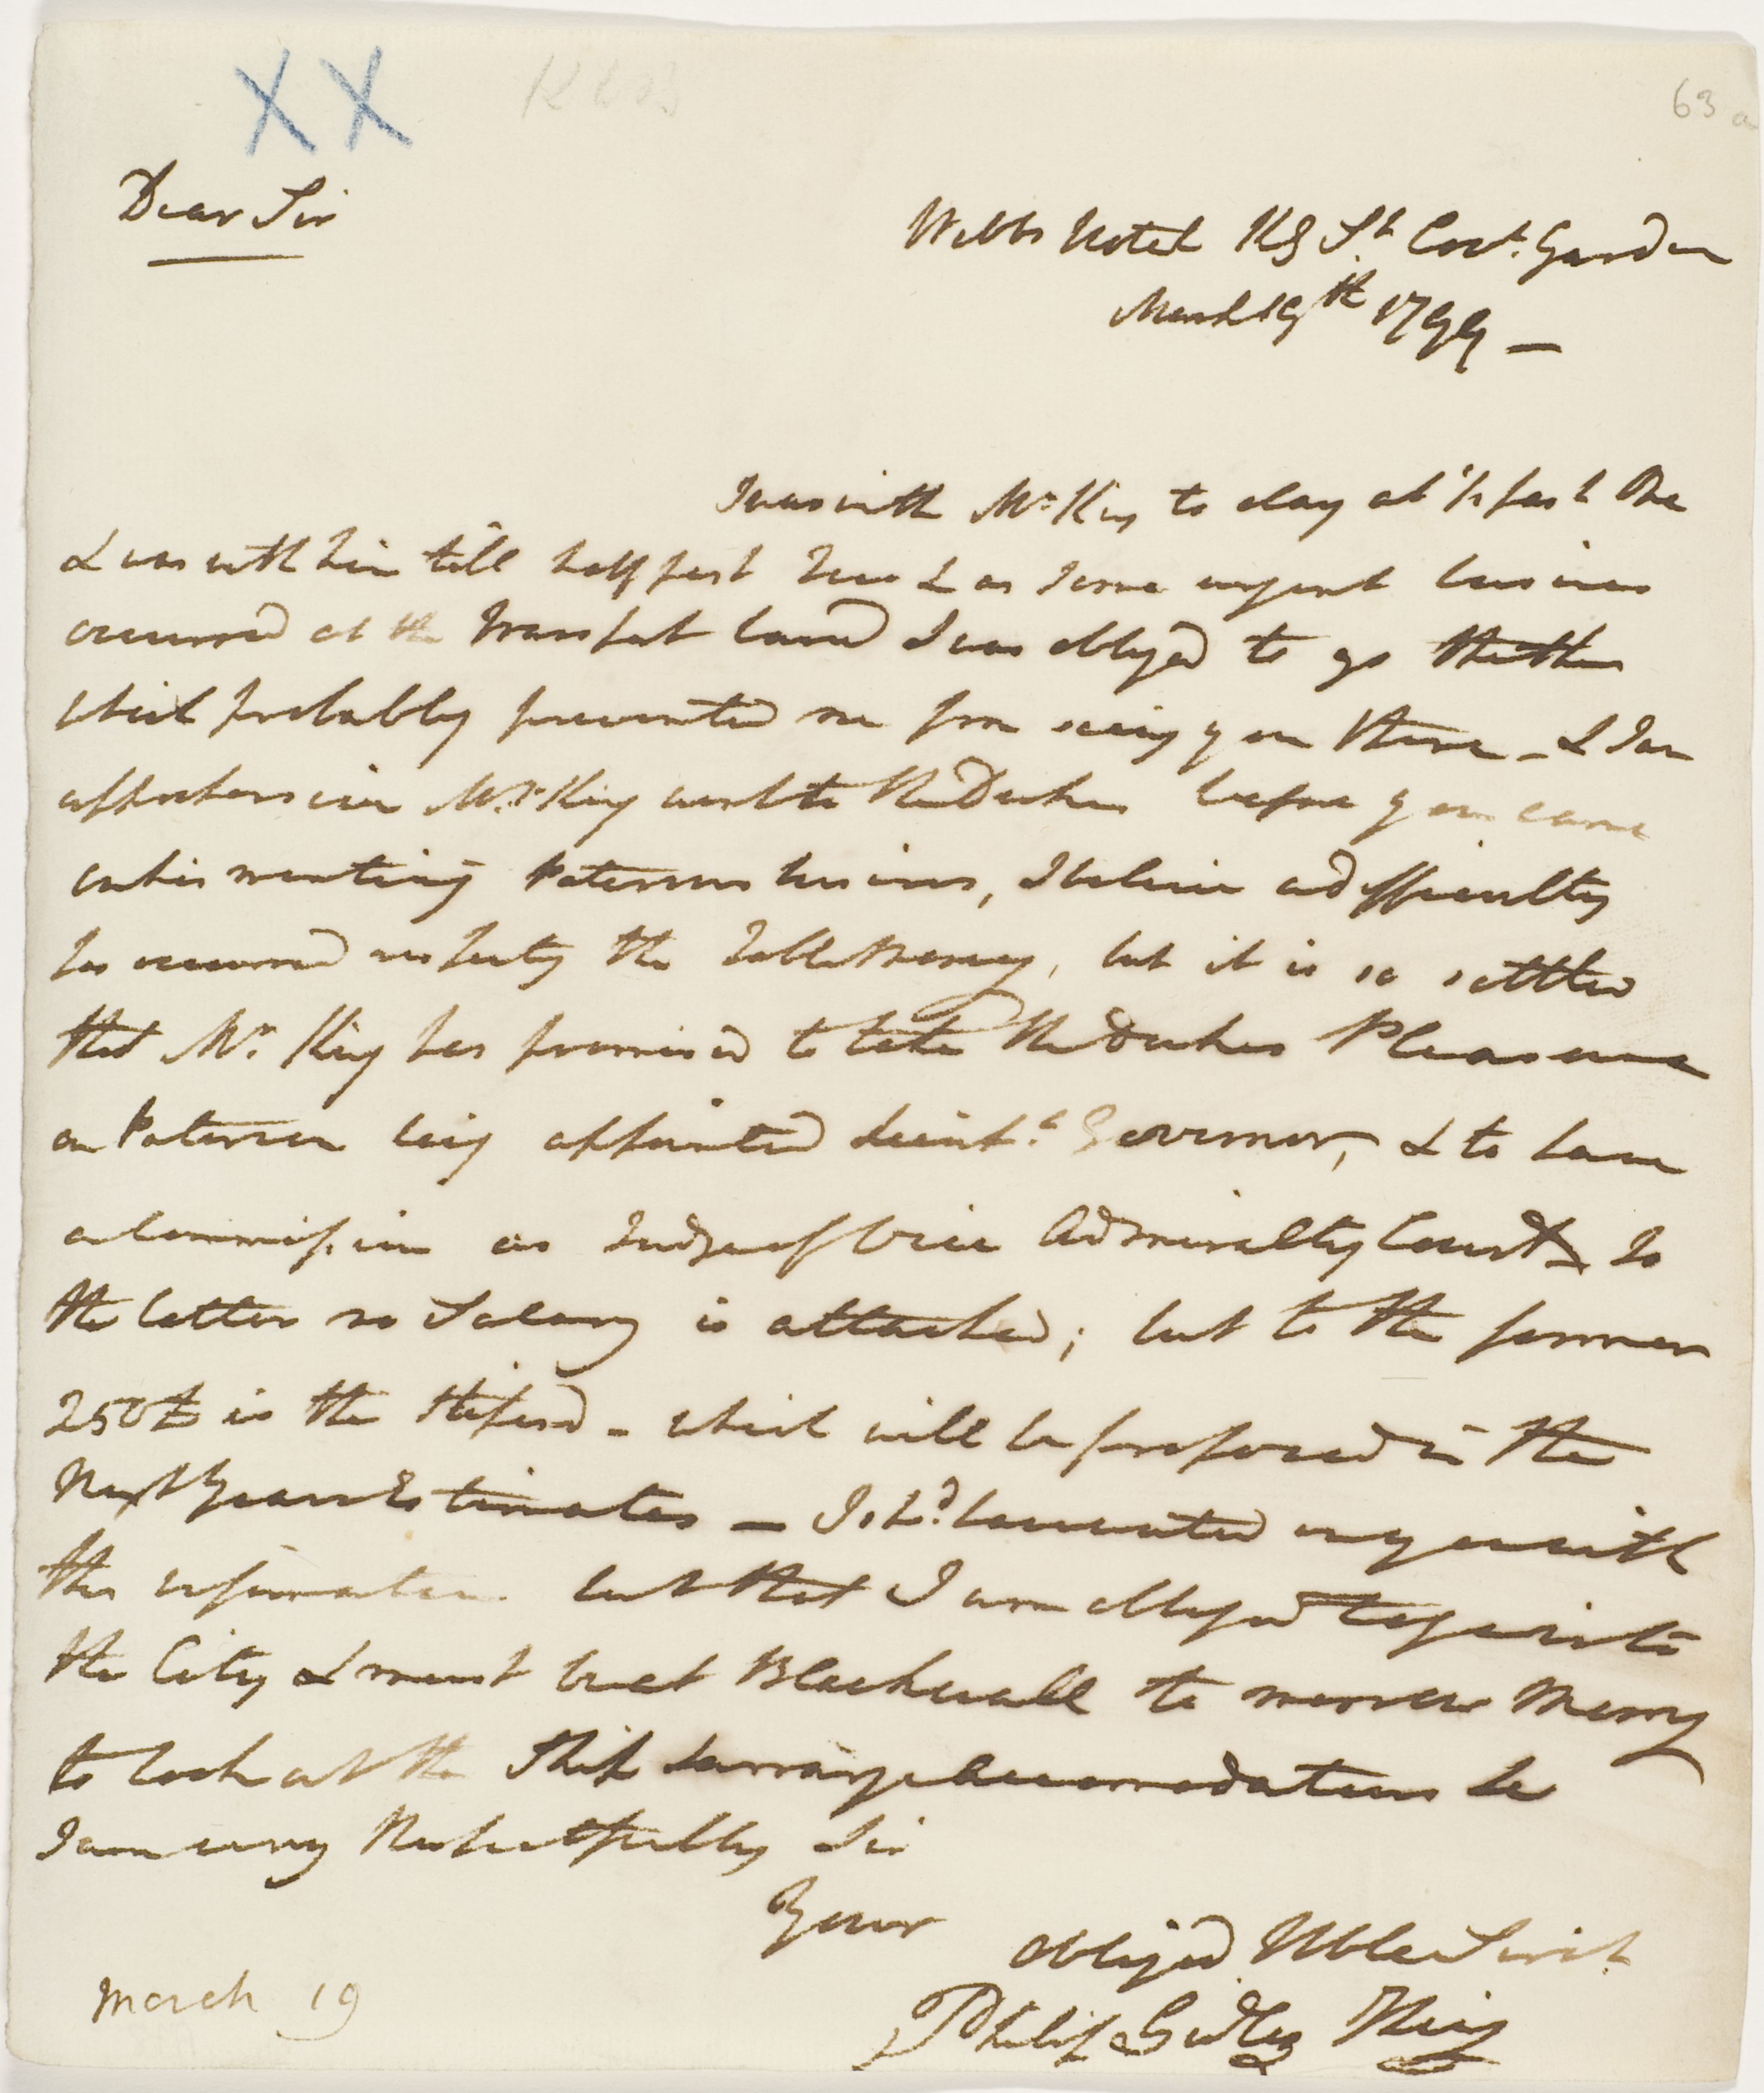 XX
63 a
Dear Sir
Webbs Hotel Kg St. Covt. Garden
March 19th 1799 —
I was with Mr King to day at ½ past One
& was with him till half past Two & as some urgent business
occurred at the Transport board I was obliged to go thither
which probably prevented me from seeing you there - & I am
apprehensive Mr. King went to the Dukes before you came
on his mentioning Patersons business, I believe a difficulty
has occurred respecting the Table Money, but it is so settled
that Mr. King has promised to take the Dukes Pleasure
on Paterson being appointed Lieut. Governor, & to have
a Commission as Judge of Vice Admiralty Court, To
the latter no Salary is attached; but to the former
250£ is the Stipend - which will be proposed in the
Next Years Estimates — I shd. have waited on you with
this information but that I am obliged to go into
the City & must be at Blackwall to morrow Morng
to look at the Ship & arrange Accomodations &c
I am very Respectfully Sir
Your
Obliged Hble Servt.
Philip Gidley King
March 19